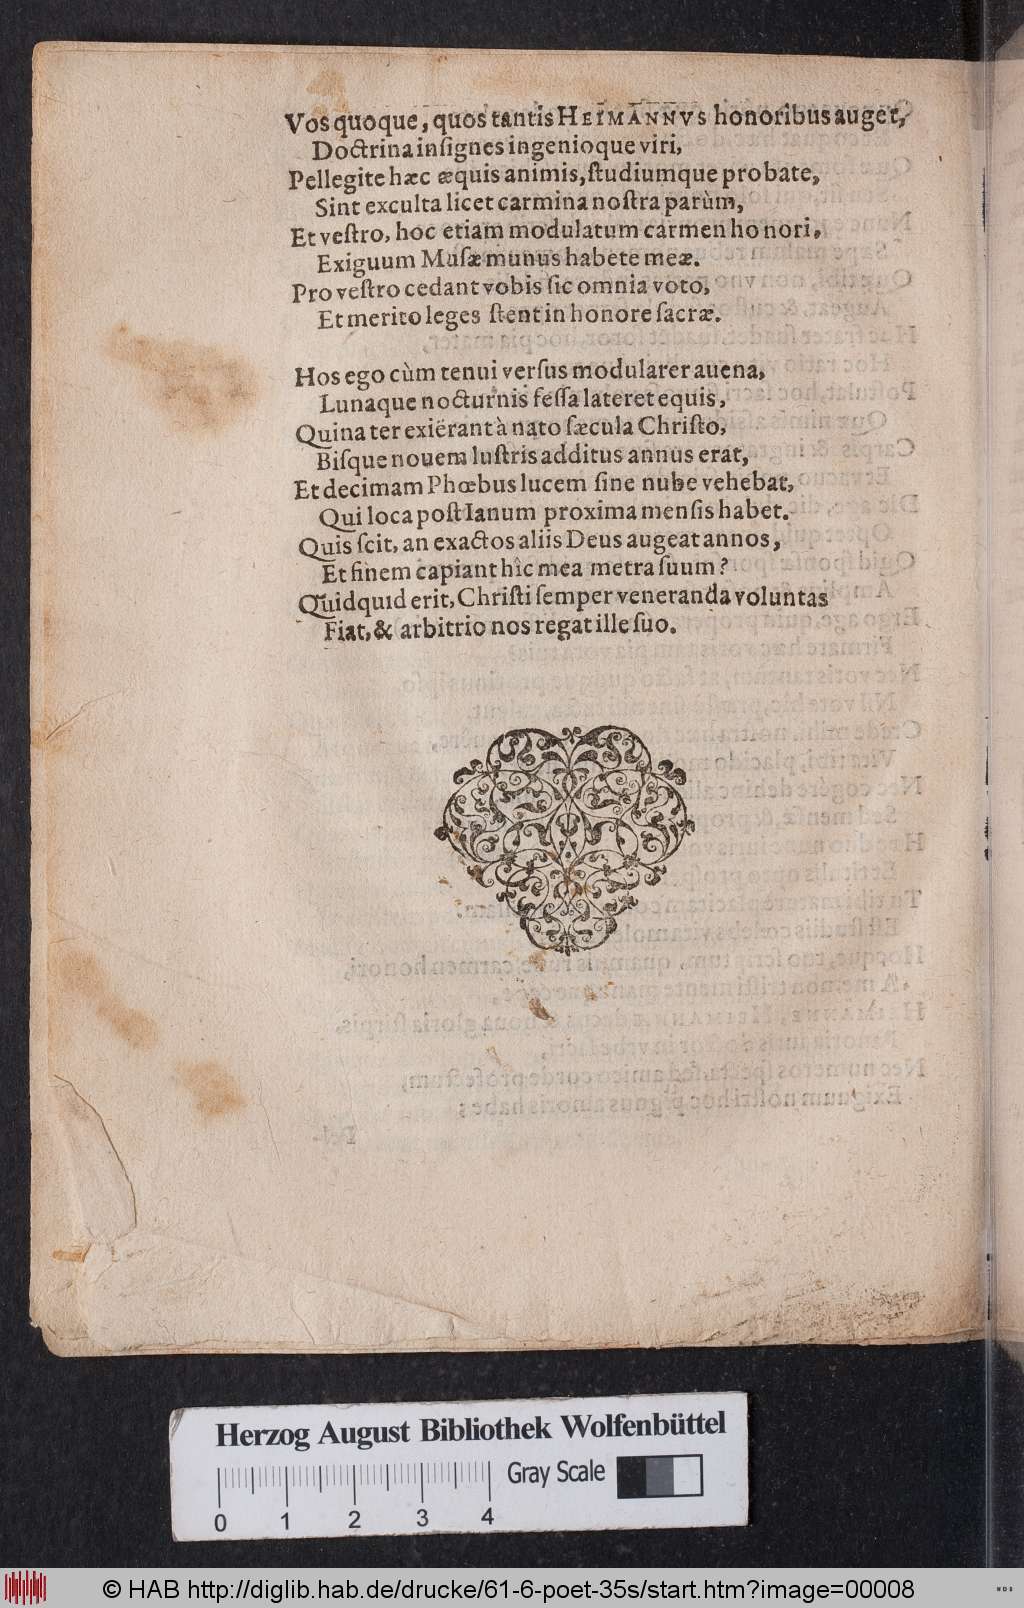 Vos quoque, quos tantis HEIMANNVS honoribus auget,
Doctrina insignes ingenioque viri,
Pellegite hæc æquis animis, studiumque probate,
Sint exculta licet carmina nostra parùm,
Et vestro, hoc etiam modulatum carmen honori,
Exiguum Musæ munus habete meæ.
Pro vestro cedant vobis sic omnia voto,
Et merito leges stent in honore sacræ.
Hos ego cùm tenui versus modularer auena,
Lunaque nocturnis fessa lateret equis,
Quina ter exiërant à nato sæcula Christo,
Bisque nouem lustris additus annus erat,
Et decimam Phœbus lucem sine nube vehebat,
Qui loca post Ianum proxima mensis habet.
Quis scit, an exactos aliis Deus augeat annos,
Et finem capiant hîc mea metra suum?
Quidquid erit, Christi semper veneranda voluntas
Fiat, & arbitrio nos regat ille suo.
Herzog August Bibliothek Wolfenbüttel
Gray Scale
0 1 2 3 4
© HAB http://diglib.hab.de/drucke/61-6-poet-35s/start.htm?image=00008